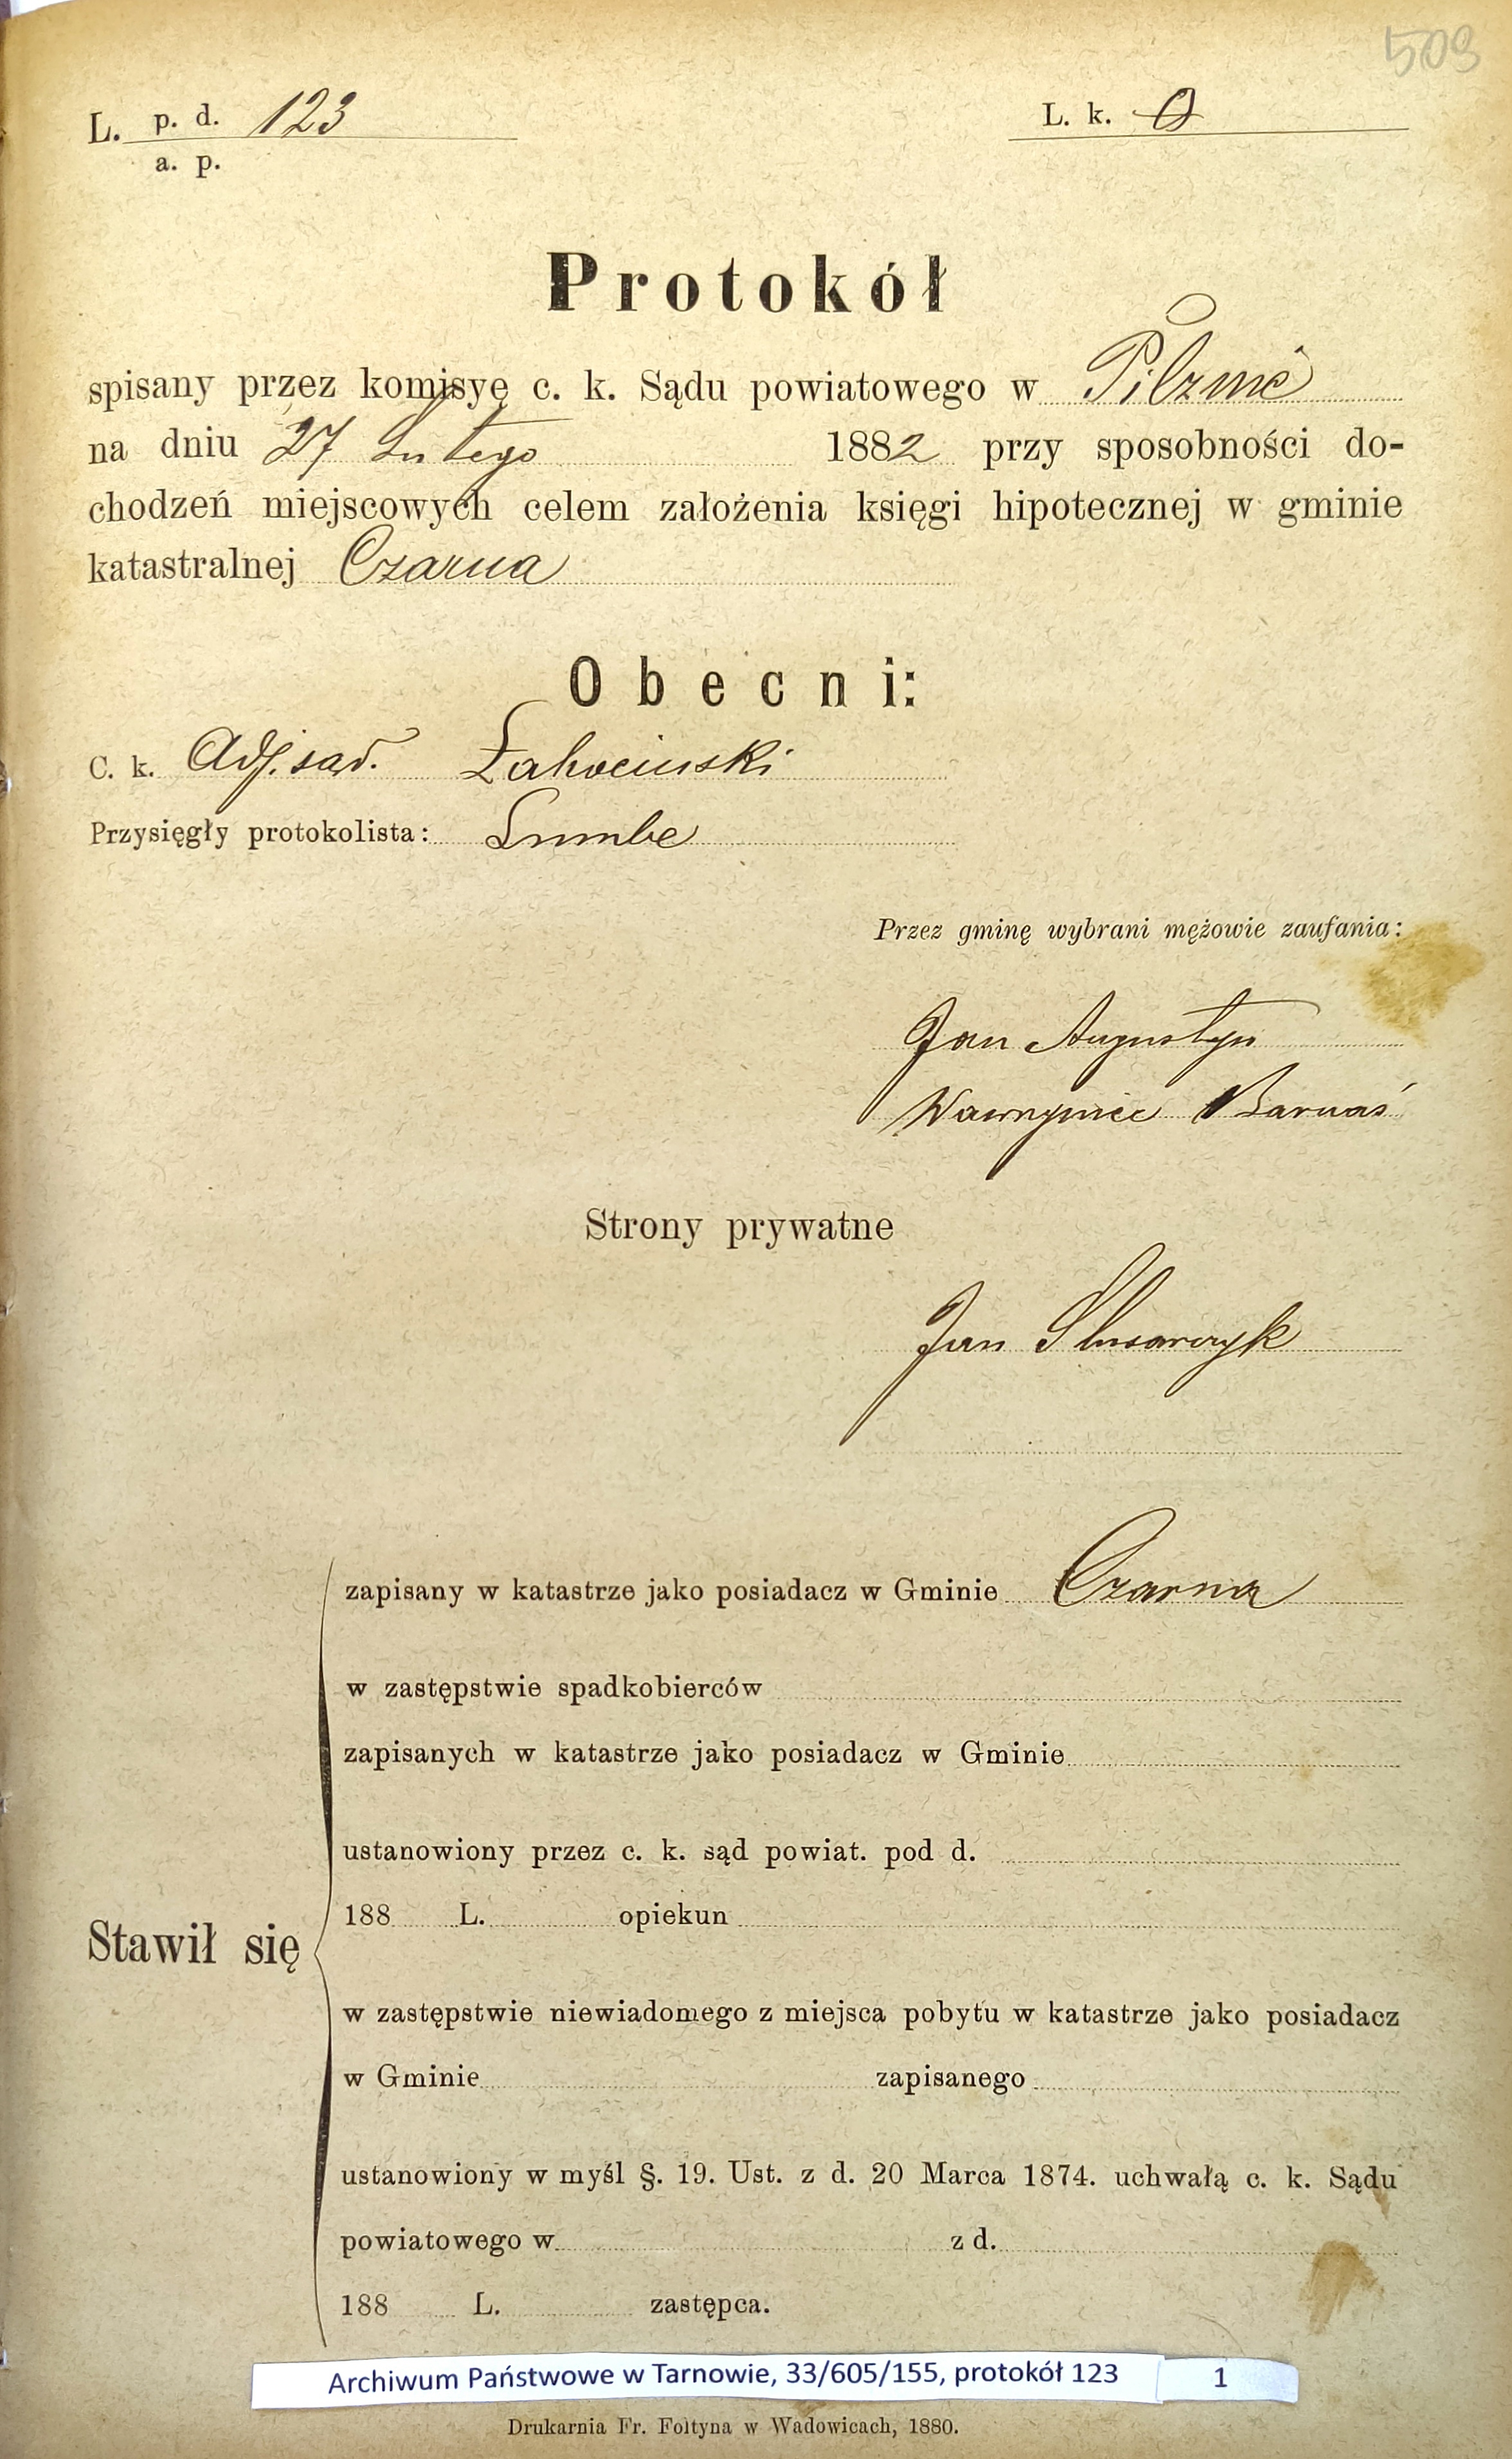 509
L. p. d. 123
a. p.
L. k. 0
Protokół
spisany przez komisyę c. k. Sądu powiatowego w Pilźnie
na dniu 27 Lutego 1882 przy sposobności do-
chodzeń miejscowych celem założenia księgi hipotecznej w gminie
katastralnej Czarna
Obecni:
C. k. Adj. sąd. Żahociński
Przysięgły protokolista: Lumbe
Przez gminę wybrani mężowie zaufania:
Jan Augustyn
Wawrzyniec Barnaś
Strony prywatne
Jan Slusarczyk
zapisany w katastrze jako posiadacz w Gminie Czarna
w zastępstwie spadkobierców
zapisanych w katastrze jako posiadacz w Gminie
ustanowiony przez c. k. sąd powiat. pod d.
188 L. opiekun
Stawił się
w zastępstwie niewiadomego z miejsca pobytu w katastrze jako posiadacz
w Gminie zapisanego
ustanowiony w myśl §. 19. Ust. z d. 20 Marca 1874. uchwałą c. k. Sądu
powiatowego w z d.
188 L. zastępca.
Archiwum Państwowe w Tarnowie, 33/605/155, protokół 123 1
Drukarnia Fr. Foltyna w Wadowicach, 1880.